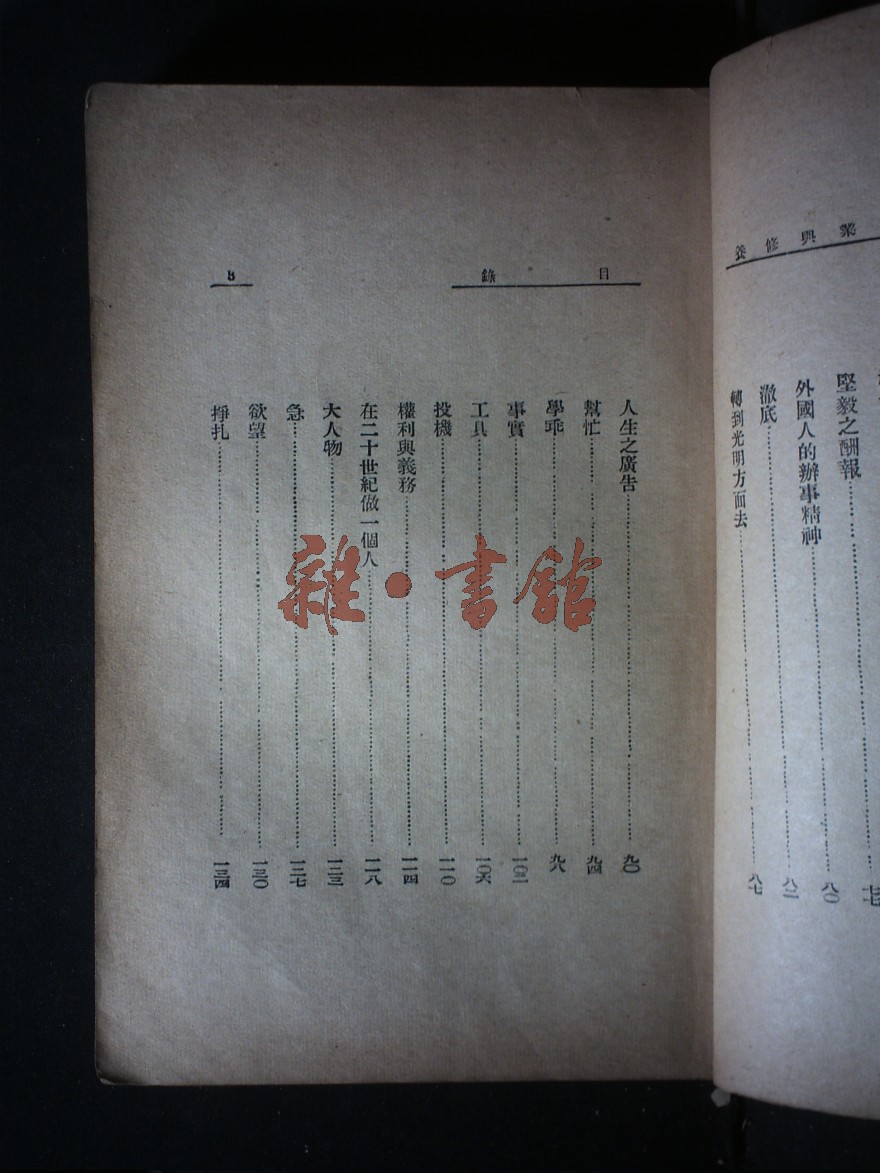 業與修養
堅毅之酬報
外國人的辦事精神 八〇
澈底 八二
轉到光明方面去 八七
目錄
3
人生之廣告 九〇
幫忙 九四
學乖 九八
事實 一〇二
工具 一〇六
投機 一一〇
權利與義務 一一四
在二十世紀做一個人 一一八
大人物 一二三
急 一二七
欲望 一三〇
掙扎 一三四
雜·書館